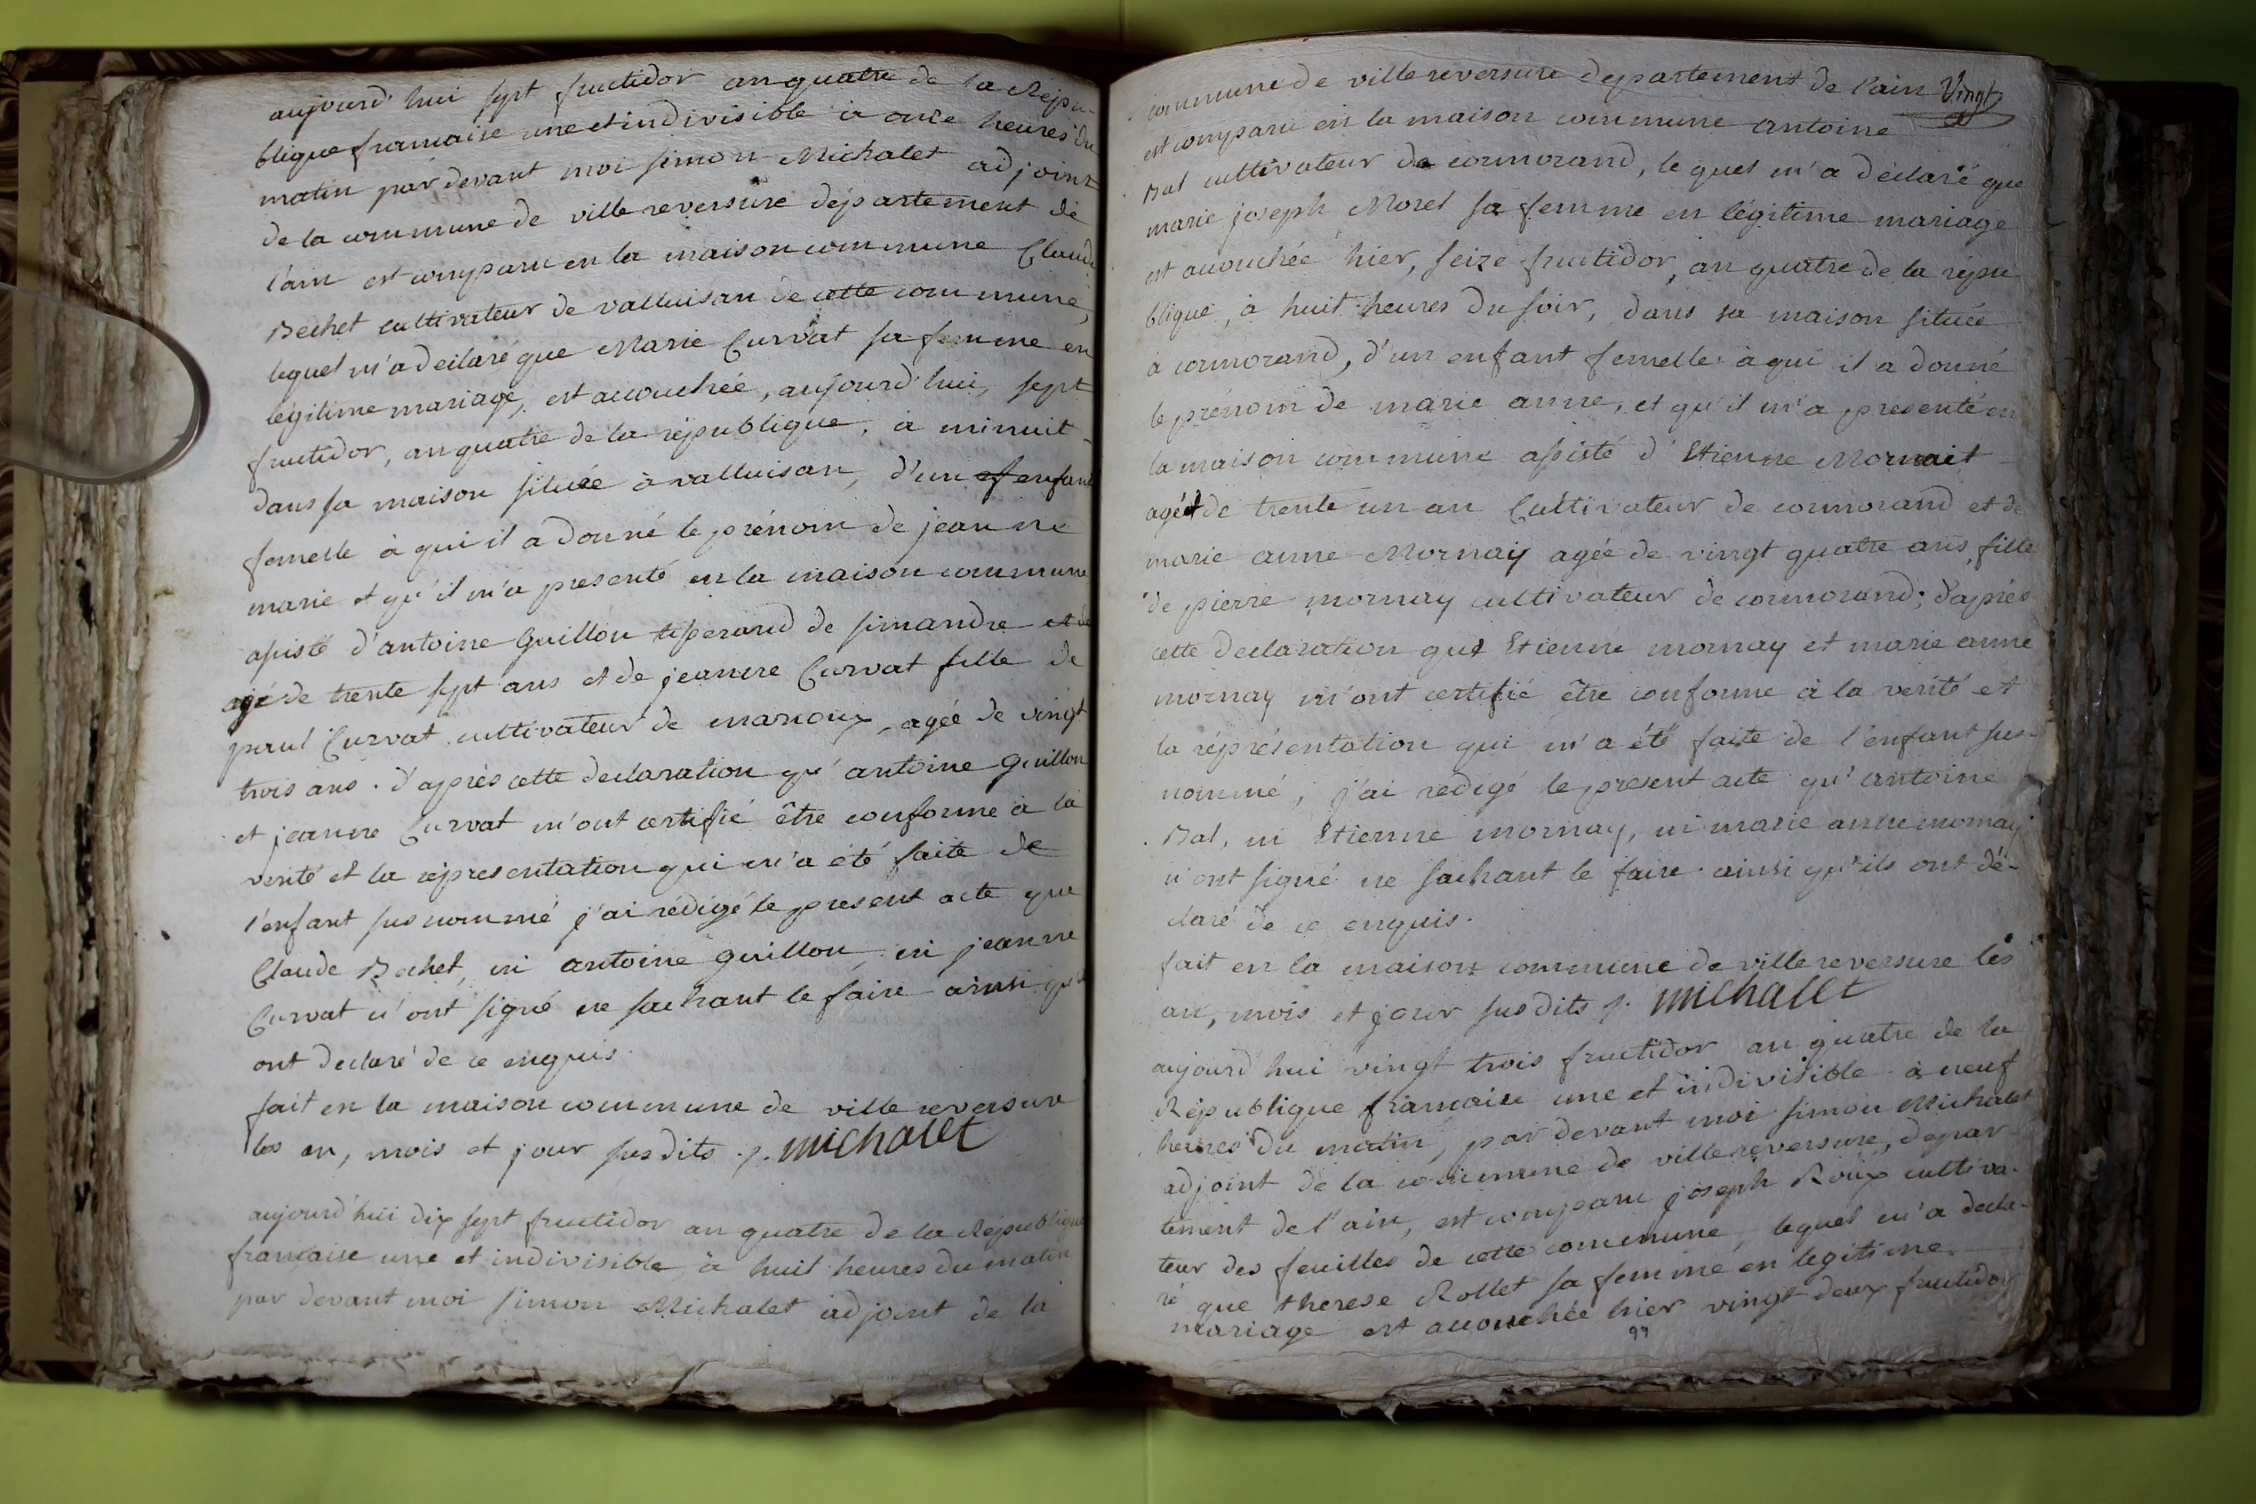 aujourd'hui sept fructidor an quatre de la Répu-
blique francaise une et indivisible à onze heures du
matin par devant moi simon Michalet adjoint
de la commune de villereversure département de
l'ain est comparu en la maison commune Claude
Bechet cultivateur de valluisan de cette commune,
lequel m'a déclaré que Marie Curvat sa femme en
légitime mariage, est accouchée, aujourd'hui, sept
fructidor, an quatre de la république, à minuit
dans sa maison située à valluisan, d'un enfant
femelle à qui il a donné le prénom de jeanne
marie et qu'il m'a presenté en la maison commune
assisté d'antoine Guillon tisserand de simandre et de
agé de trente sept ans et de jeanne Curvat fille de
paul Curvat cultivateur de marioux, agée de vingt
trois ans. d'après cette declaration qu'antoine Guillon
et jeanne Curvat m'ont certifié être conforme à la
verité et la représentation qui m'a été faite de
l'enfant sus nommé j'ai rédigé le present acte que
Claude Bechet, ni antoine guillon, ni jeanne
Curvat n'ont signé ne sachant le faire ainsi qu'ils
ont declaré de ce enquis.
fait en la maison commune de villereversure
les an, mois et jour susdits ./. michalet
aujourd'hui dix sept fructidor an quatre de la République
francaise une et indivisible, à huit heures du matin
par devant moi simon Michalet adjoint de la
commune de villereversure département de l'ain Vingt
est comparu en la maison commune antoine
Bal cultivateur de cormorand, lequel m'a déclaré que
marie joseph Morel sa femme en légitime mariage
est accouchée hier, seize fructidor, an quatre de la répu
blique, à huit heures du soir, dans sa maison située
à cormorand, d'un enfant femelle à qui il a donné
le prénom de marie anne, et qu'il m'a presenté en
la maison commune assisté d'Etienne Mornait
agé de trente un an Cultivateur de cormorand et de
marie anne Mornay agée de vingt quatre ans, fille
de pierre mornay cultivateur de cormorand; d'après
cette declaration que Etienne mornay et marie anne
mornay m'ont certifié être conforme à la verité et
la répresentation qui m'a été faite de l'enfant sus-
nommé, j'ai redigé le present acte qu'antoine
Bal, ni Etienne mornay, ni marie anne mornay
n'ont signé ne sachant le faire ainsi qu'ils ont dé-
claré de ce enquis.
fait en la maison commune de villereversure les
an, mois et jour susdits ./. michalet
aujourd'hui vingt trois fructidor an quatre de la
République francaise une et indivisible à neuf
heures du matin, par devant moi simon Michalet
adjoint de la commune de villereversure, depar-
tement de l'ain, est comparu joseph Roux cultiva-
teur des feuilles de cette commune, lequel m'a decla-
ré que therese Rollet sa femme en legitime
mariage est accouchée hier vingt deux fructidor